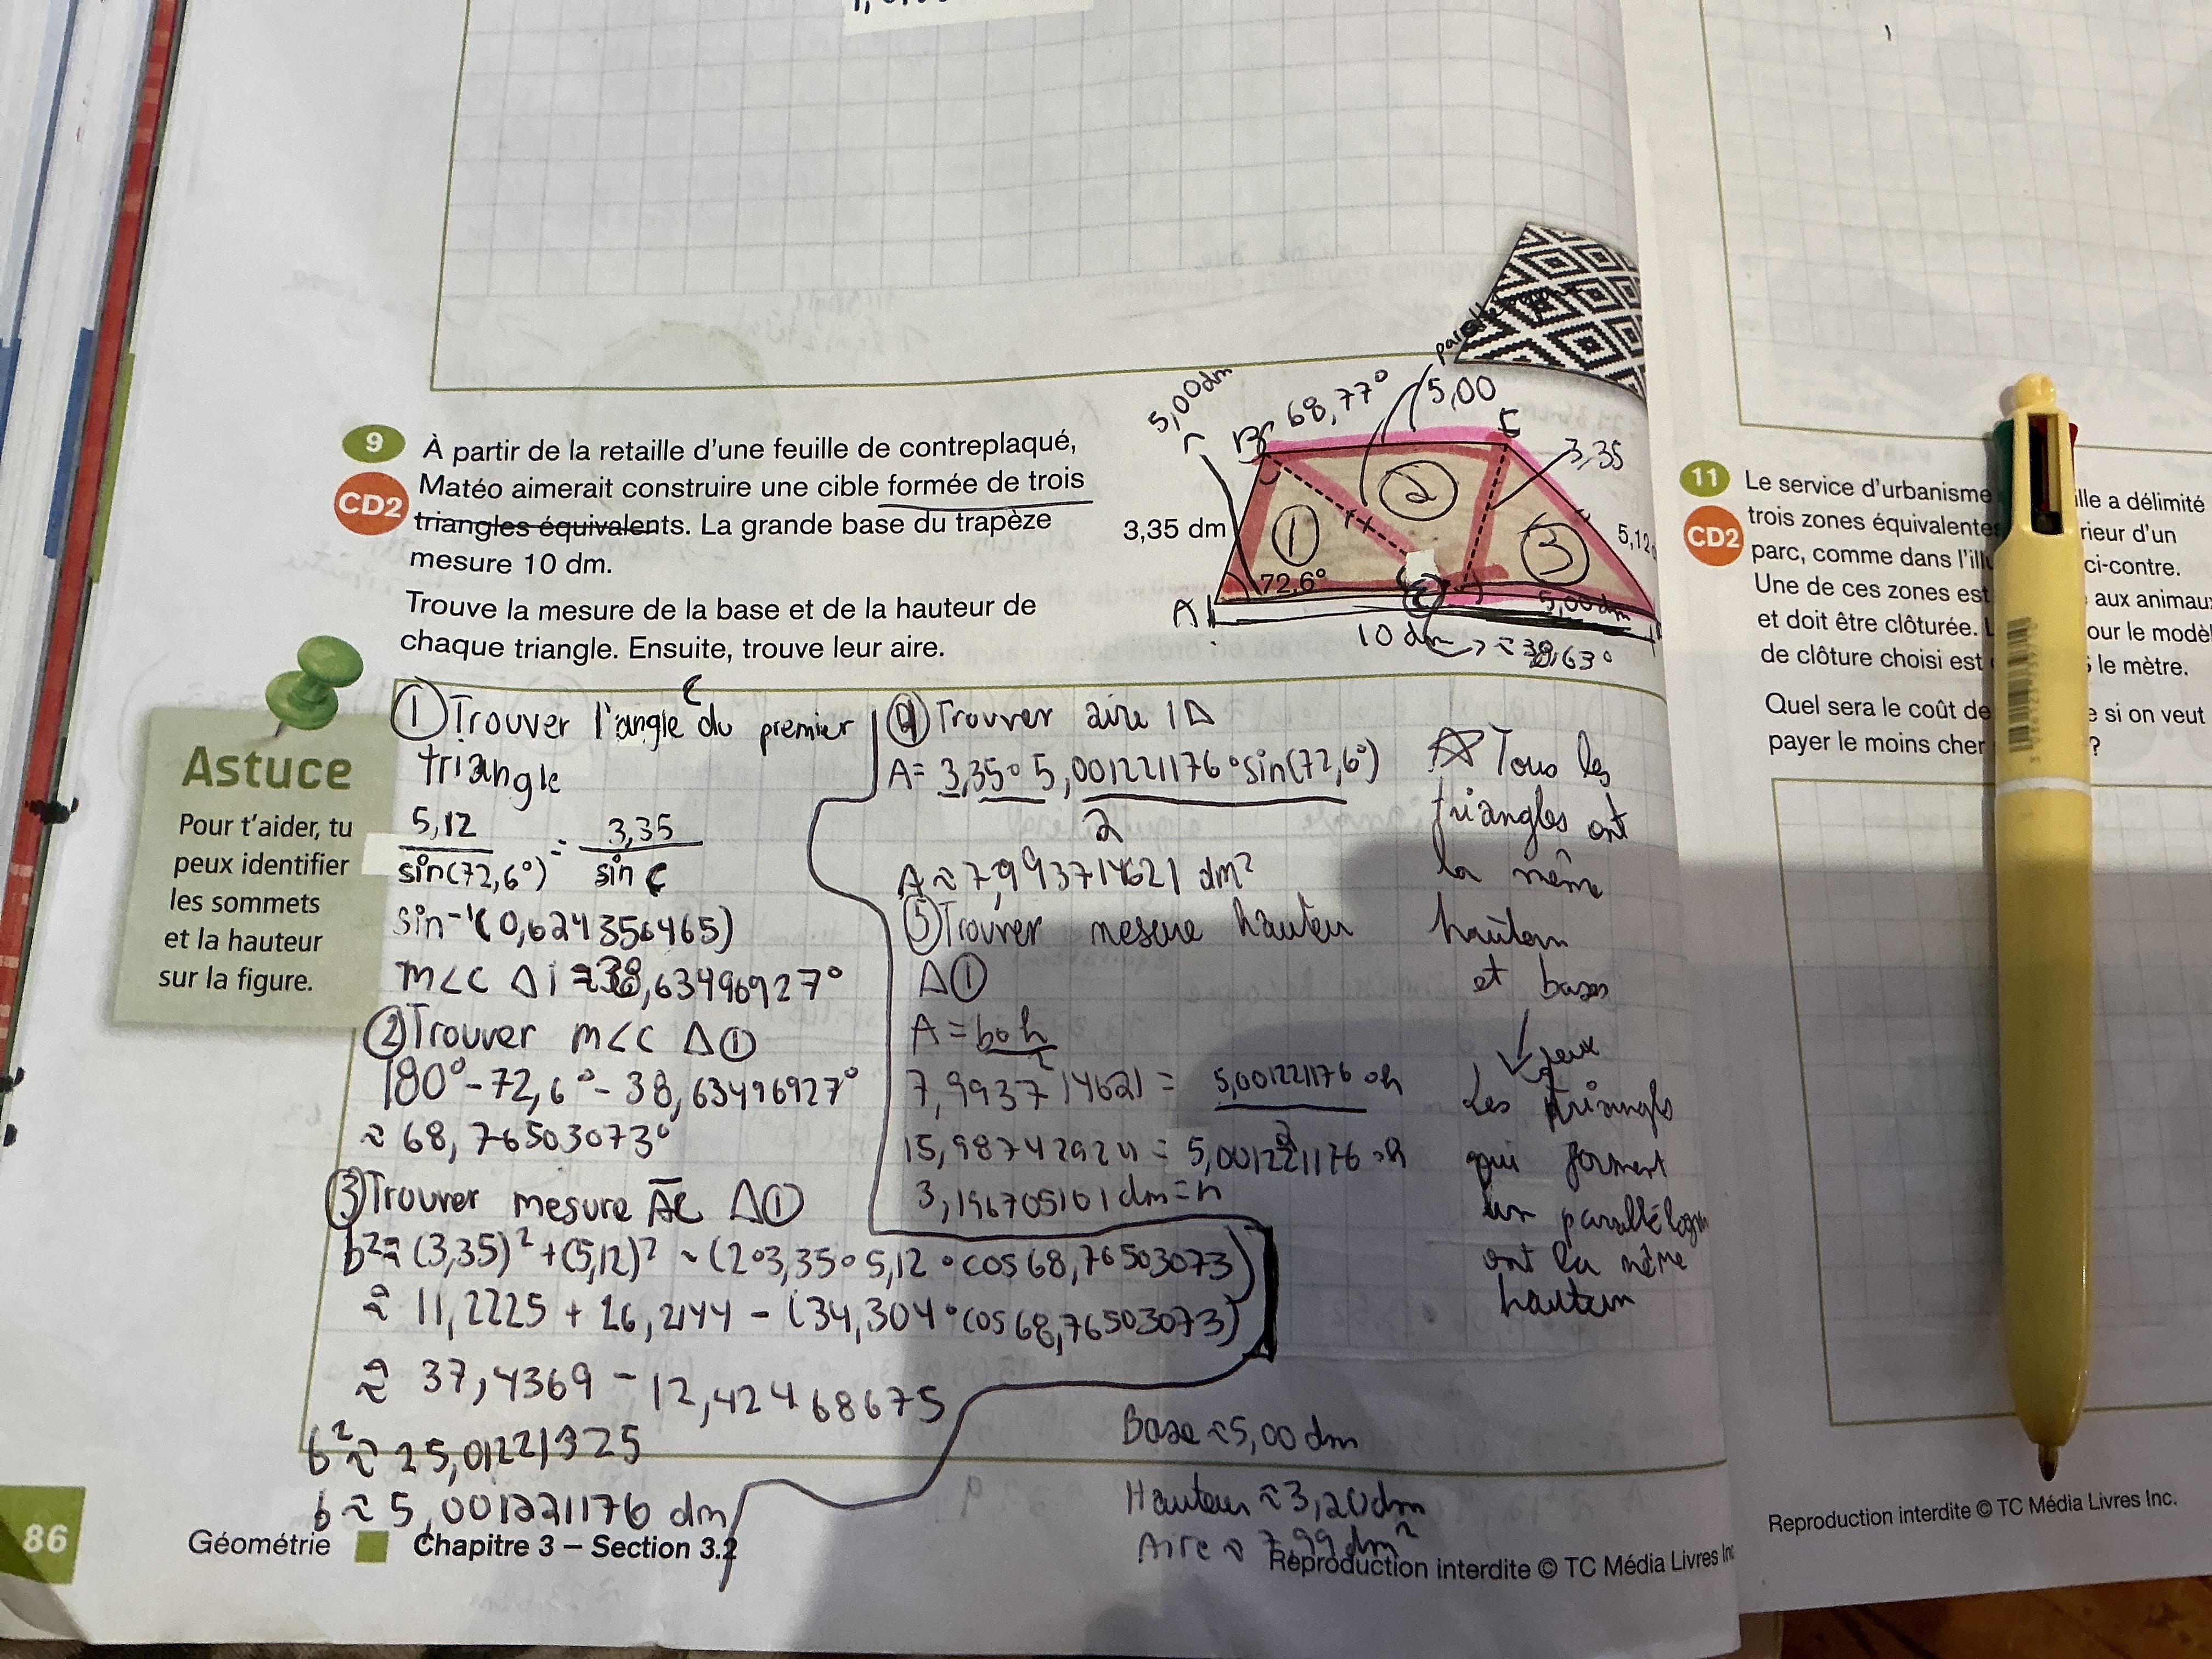 9 À partir de la retaille d'une feuille de contreplaqué,
CD2 Matéo aimerait construire une cible formée de trois
triangles équivalents. La grande base du trapèze
mesure 10 dm.
Trouve la mesure de la base et de la hauteur de
chaque triangle. Ensuite, trouve leur aire.
5,00dm
68,77°
5,00
B
E
3,35
3,35 dm
1
2
3
5,12
72,6°
A
C
5,00dm
10 dm
≈38,63°
Astuce
Pour t'aider, tu
peux identifier
les sommets
et la hauteur
sur la figure.
① Trouver l'angle C du premier
triangle
5,12 / sin(72,6°) = 3,35 / sin C
sin⁻¹(0,624356465)
m<C Δ1 ≈38,63496927°
② Trouver m<C Δ①
180°-72,6°-38,63496927°
≈ 68,76503073°
③ Trouver mesure AC Δ①
b²≈(3,35)²+(5,12)²-(2∘3,35∘5,12∘cos68,76503073)
≈ 11,2225 + 26,2144 - (34,304∘cos68,76503073)
≈ 37,4369 - 12,42468675
b²≈ 25,01221325
b ≈ 5,001221176 dm
④ Trouver aire 1Δ
A= 3,35∘5,001221176∘sin(72,6°)
2
A≈7,993714621 dm²
⑤ Trouver mesure hauteur
Δ①
A = b∘h
2
7,993714621 = 5,001221176∘h
2
15,98742924 = 5,001221176∘h
3,196705101dm=h
Tous les
triangles ont
la même
hauteur
et bases
Les triangles
qui forment
un parallélogram
ont la même
hauteur
Base ≈5,00 dm
Hauteur ≈3,20dm
Aire ≈ 7,99 dm²
86
Géométrie Chapitre 3 – Section 3.2
Reproduction interdite © TC Média Livres In
11 Le service d'urbanisme ille a délimité
CD2 trois zones équivalentes rieur d'un
parc, comme dans l'ill ci-contre.
Une de ces zones est aux animau
et doit être clôturée. our le modè
de clôture choisi est le mètre.
Quel sera le coût de e si on veut
payer le moins cher ?
Reproduction interdite © TC Média Livres Inc.